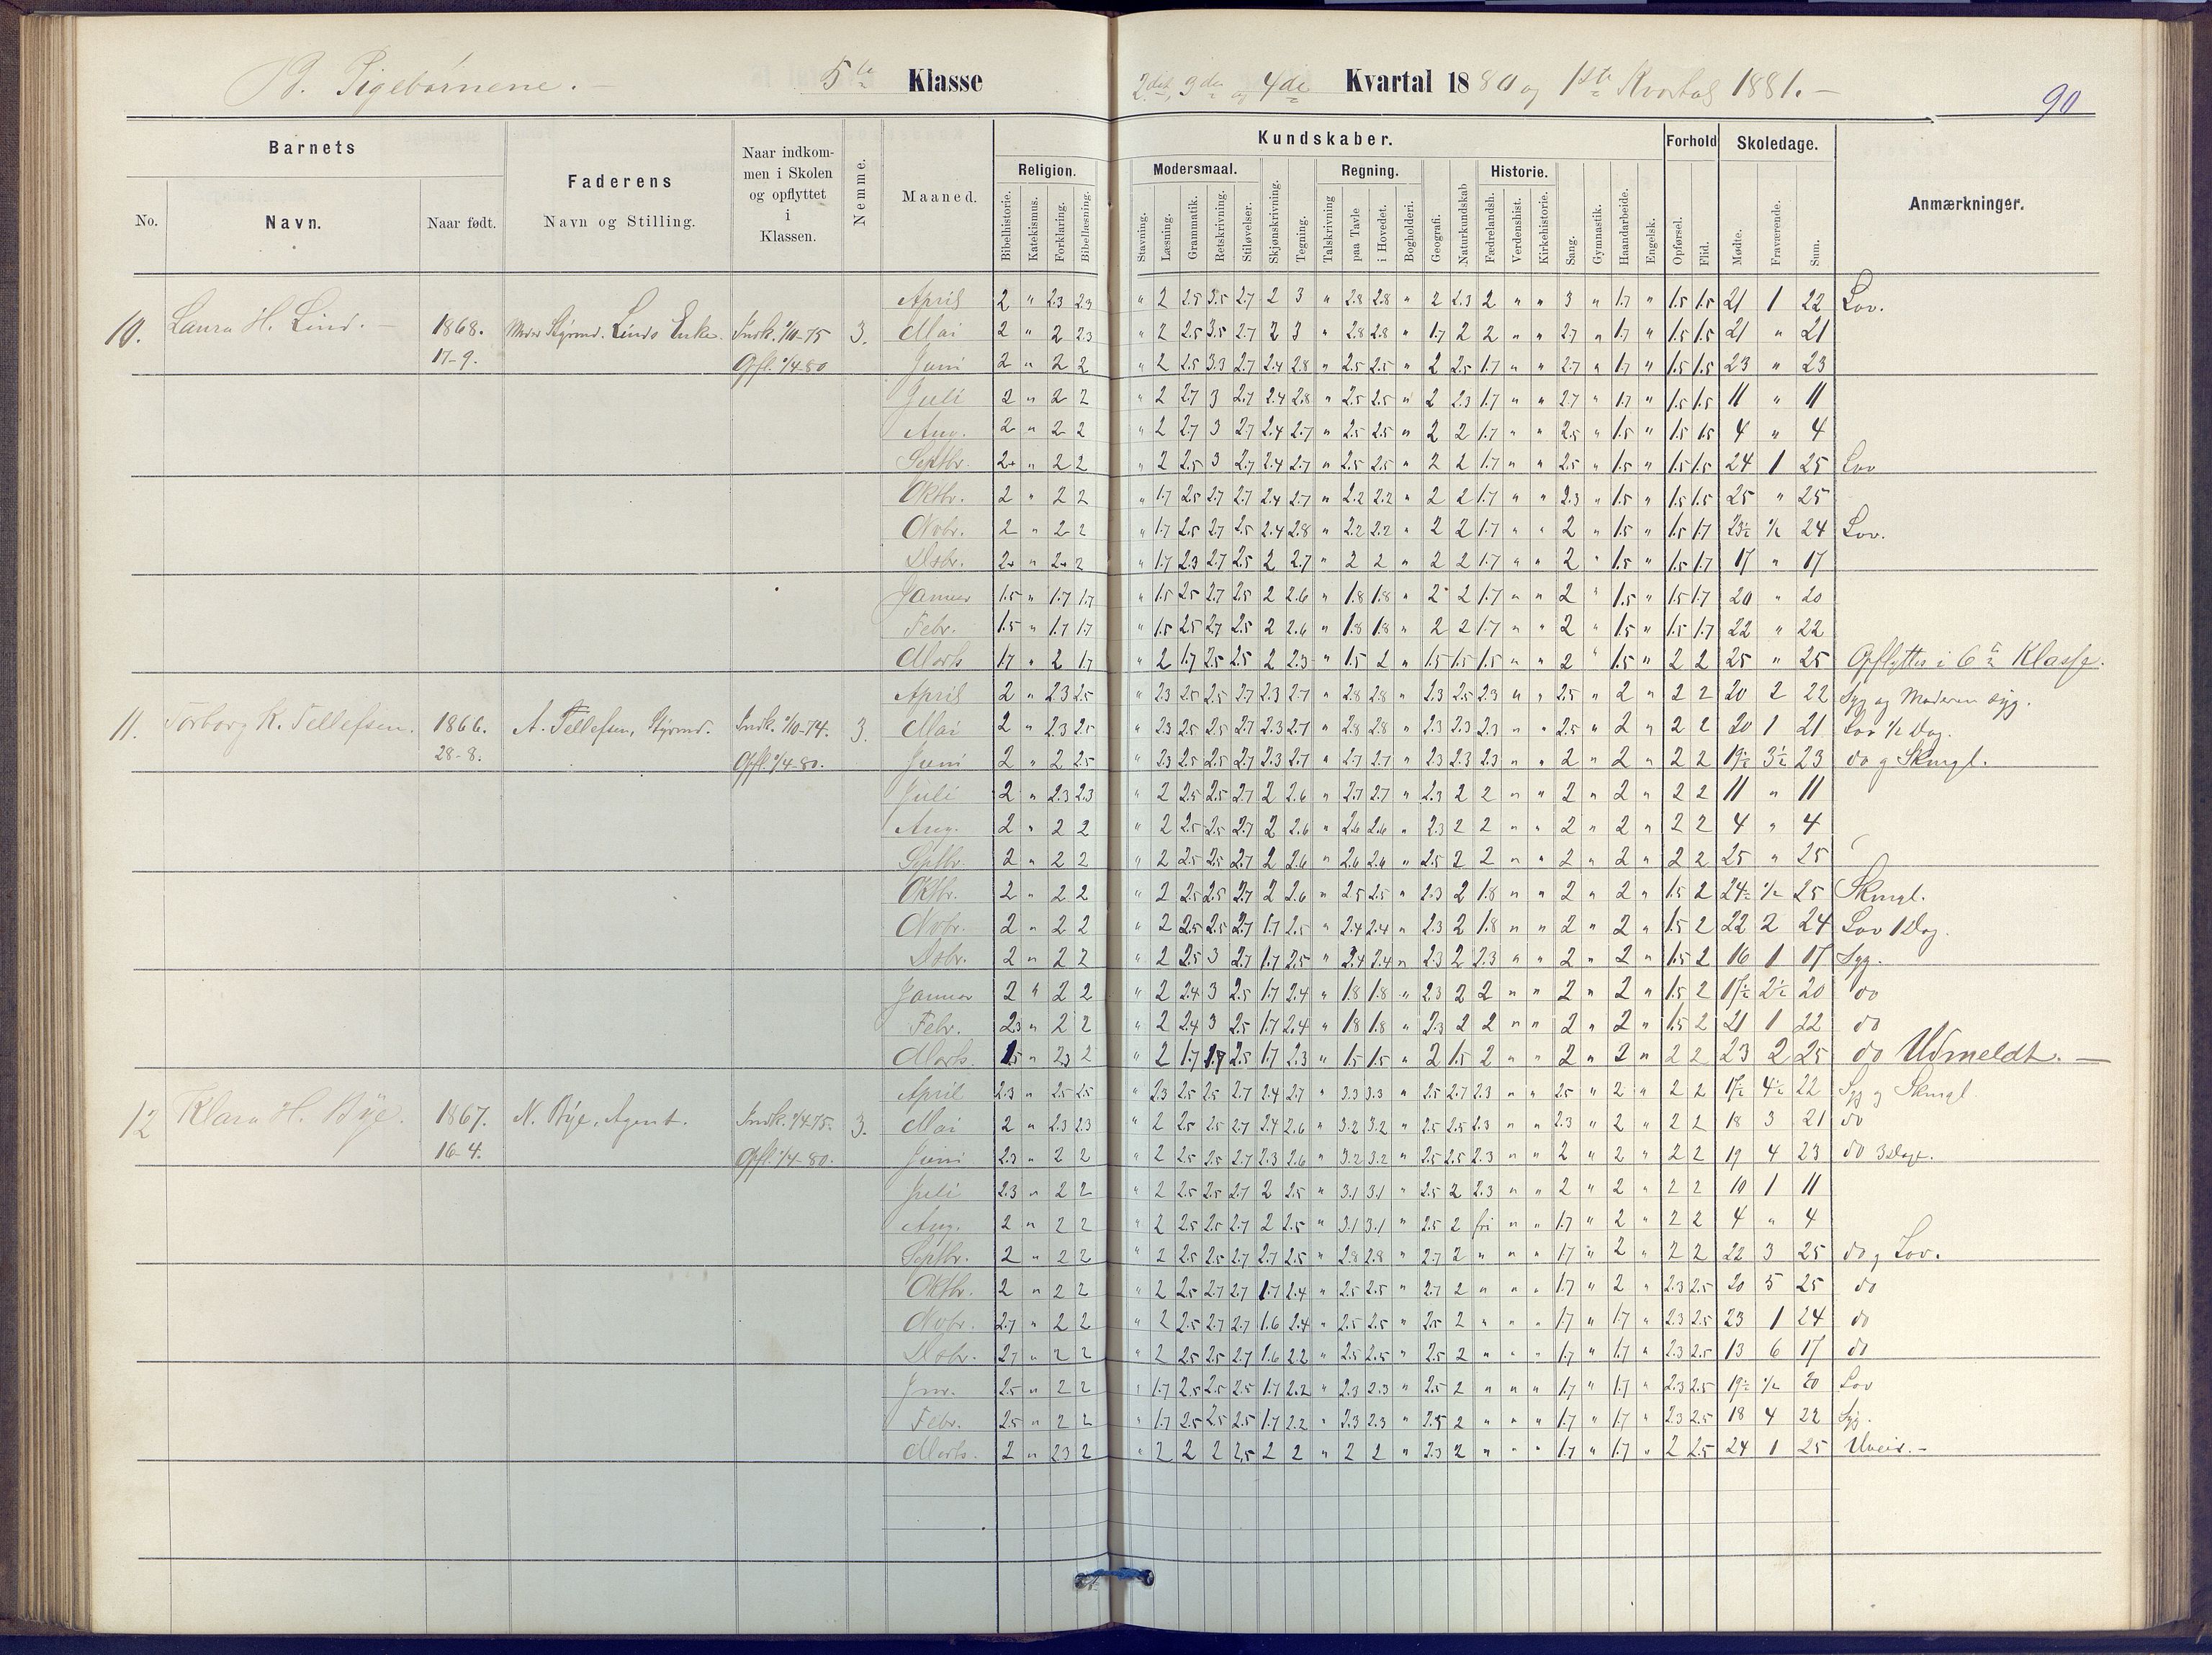 B. Pigebørnene. – 5te Klasse 2det, 3die og 4de Kvartal 1880 og 1ste Kvartal 1881. – 90
Barnets
No. Navn. Naar født.
Faderens
Navn og Stilling.
Naar indkom-
men i Skolen
og opflyttet
i
Klassen.
Nemme.
Maaned.
Kundskaber.
Religion.
Bibelhistorie. Katekismus. Forklaring. Bibellæsning.
Modersmaal.
Stavning. Læsning. Grammatik. Retskrivning. Stiløvelser.
Skjønskrivning. Tegning.
Regning.
Talskrivning paa Tavle i Hovedet.
Bogholderi. Geografi. Naturkundskab
Historie.
Fædrelandsh. Verdenshist. Kirkehistorie.
Sang. Gymnastik. Haandarbeide. Engelsk.
Forhold
Opførsel. Flid.
Skoledage.
Mødte. Fraværende. Sum.
Anmærkninger.
April 2 " 2.3 2.3 " 2 2.5 3.5 2.7 2 3 " 2.8 2.8 " 2 2.3 2 " " 3 " 1.7 " 1.5 1.5 21 1 22 Lov.
10. Laura H. Lind. – 1868. Styrmd. Linds Enke. Indk. 1/10-75 3. Mai 2 " 2 2.3 " 2 2.5 3.5 2.7 2 3 " 2.8 2.8 " 1.7 2 2 " " 2.7 " 1.7 " 1.5 1.5 21 " 21
17-9. Opfl. 1/4 80 Juni 2 " 2 2 " 2 2.5 3.3 2.7 2.4 2.8 " 2.5 2.5 " 2 2.5 1.7 " " 2.7 " 1.7 " 1.5 1.5 23 " 23
Juli 2 " 2 2 " 2 2.7 3 2.7 2.4 2.8 " 2.5 2.5 " 2 2.3 1.7 " " 2.7 " 1.7 " 1.5 1.5 11 " 11
Aug. 2 " 2 2 " 2 2.7 3 2.7 2.4 2.7 " 2.5 2.5 " 2 2 1.7 " " 2.5 " 1.5 " 1.5 1.5 4 " 4
Septbr. 2 " 2 2 " 2 2.5 3 2.7 2.4 2.7 " 2.5 2.5 " 2 2 1.7 " " 2.5 " 1.5 " 1.5 1.5 24 1 25 Lov
Oktbr. 2 " 2 2 " 1.7 2.5 2.7 2.7 2.4 2.7 " 2.2 2.2 " 2 2 1.7 " " 2.3 " 1.5 " 1.5 1.5 25 " 25
Novbr. 2 " 2 2 " 1.7 2.5 2.7 2.5 2.4 2.8 " 2.2 2.2 " 2 2 1.7 " " 2 " 1.5 " 1.5 1.7 23½ ½ 24 Lov.
Dsbr. 2 " 2 2 " 1.7 2.3 2.7 2.5 2 2.7 " 2 2 " 2 2 1.7 " " 2 " 1.5 " 1.5 1.7 17 " 17
Januar 1.5 " 1.7 1.7 " 1.5 2.5 2.7 2.5 2 2.6 " 1.8 1.8 " 2 2 1.7 " " 2 " 1.5 " 1.5 1.7 20 " 20
Febr. 1.5 " 1.7 1.7 " 1.5 2.5 2.7 2.5 2 2.6 " 1.8 1.8 " 2 2 1.7 " " 2 " 1.5 " 1.5 1.7 22 " 22
Marts 1.7 " 2 1.7 " 2 1.7 2.5 2.5 2 2.3 " 1.5 2 " 1.5 1.5 1.5 " " 2 " 1.5 " 2 2 25 " 25 Opflyttes i 6te Klasse.
April 2 " 2.3 2.5 " 2.3 2.5 2.5 2.7 2.3 2.7 " 2.8 2.8 " 2.3 2.5 2.3 " " 2.5 " 2 " 2 2 20 2 22 Syg og Moderen syg.
11. Torborg K. Tellefsen. 1866. A. Tellefsen, Styrmd. Indk. 1/10-74. 3. Mai 2 " 2.3 2.5 " 2.3 2.5 2.5 2.7 2.3 2.7 " 2.8 2.8 " 2.3 2.3 2.3 " " 2.5 " 2 " 2 2 20 1 21 Lov ½ Dag.
28-8. Opfl. 1/4-80. Juni 2 " 2 2.5 " 2.3 2.5 2.5 2.7 2.3 2.7 " 2.7 2.7 " 2.3 2.3 2.3 " " 2 " 2 " 2 2 19½ 3½ 23 do og Skmgl.
Juli 2 " 2.3 2.3 " 2 2.5 2.5 2.7 2 2.6 " 2.7 2.7 " 2.3 2 2 " " 2 " 2 " 2 2 11 " 11
Aug. 2 " 2 2 " 2 2.5 2.5 2.7 2 2.6 " 2.6 2.6 " 2.3 2 2 " " 2 " 2 " 2 2 4 " 4
Septbr. 2 " 2 2 " 2 2.5 2.5 2.7 2 2.6 " 2.6 2.6 " 2.5 2 2 " " 2 " 2 " 2 2 25 " 25
Oktbr. 2 " 2 2 " 2 2.5 2.5 2.7 2 2.6 " 2.5 2.5 " 2.3 2 1.8 " " 2 " 2 " 1.5 2 24½ ½ 25 Skmgl.
Novbr. 2 " 2 2 " 2 2.5 2.5 2.7 1.7 2.5 " 2.4 2.4 " 2.3 2 1.8 " " 2 " 2 " 1.5 2 22 2 24 Lov 1 Dag.
Dsbr. 2 " 2 2 " 2 2.5 3 2.7 1.7 2.5 " 2.4 2.4 " 2.3 2 2.3 " " 2 " 2 " 1.5 2 16 1 17 Syg.
Januar 2 " 2 2 " 2 2.4 3 2.5 1.7 2.4 " 1.8 1.8 " 2.3 2 2 " " 2 " 2 " 1.5 2 17½ 2½ 20 do
Febr. 2.3 " 2 2 " 2 2.4 3 2.5 1.7 2.4 " 1.8 1.8 " 2.3 2 2 " " 2 " 2 " 1.5 2 21 1 22 do
Marts. 1.5 " 2.3 2 " 2 1.7 1.7 2.5 1.7 2.3 " 1.5 1.5 " 2 1.5 2 " " 2 " 2 " 2 2 23 2 25 do Udmeldt. –
April 2.3 " 2.5 2.5 " 2.3 2.5 2.5 2.7 2.4 2.7 " 3.3 3.3 " 2.5 2.7 2.3 " " 2.5 " 2 " 2 2 17½ 4½ 22 Syg og Skmgl
12 Klara H. Bye. 1867. N. Bye, Agent. Indk. 1/4 75. 3. Mai 2 " 2.3 2.3 " 2 2.5 2.5 2.7 2.4 2.6 " 3.2 3.2 " 2.5 2.5 2.3 " " 2.3 " 2 " 2 2 18 3 21 do
16-4. Opfl. 1/4-80. Juni 2.3 " 2 2 " 2 2.5 2.5 2.7 2.3 2.6 " 3.2 3.2 " 2.5 2.5 2.3 " " 2 " 2 " 2 2 19 4 23 do 3 Dage.
Juli 2.3 " 2 2 " 2 2.5 2.5 2.7 2 2.5 " 3.1 3.1 " 2.5 2 2.3 " " 2 " 2 " 2 2 10 1 11
Aug. 2 " 2 2 " 2 2.5 2.5 2.7 2 2.5 " 3.1 3.1 " 2.5 2 fri " " 1.7 " 2 " 2 2 4 " 4
Septbr. 2 " 2 2 " 2 2.5 2.5 2.7 2.7 2.5 " 2.8 2.8 " 2.7 2 " " " 1.7 " 2 " 2 2 22 3 25 do og Lov.
Oktbr. 2 " 2 2 " 2 2.5 2.7 2.7 1.7 2.4 " 2.5 2.5 " 2.7 2 " " " 1.7 " 2 " 2.3 2.5 20 5 25 do
Novbr. 2.7 " 2 2 " 2 2.5 2.7 2.7 1.6 2.4 " 2.5 2.5 " 2.5 2 " " " 1.7 " 1.7 " 2.3 2.5 23 1 24 do
Dsbr. 2.7 " 2 2 " 2 2.5 2.5 2.7 1.6 2.2 " 2.5 2.5 " 2.5 2 " " " 1.7 " 1.7 " 2.3 2.5 13 6 17 do
Jnr. 2.5 " 2 2 " 1.7 2.5 2.5 2.5 1.7 2.2 " 2.3 2.3 " 2.5 2 " " " 1.7 " 1.7 " 2.3 2.5 19½ ½ 20 Lov
Febr. 2.5 " 2 2 " 1.7 2.5 2.5 2.5 1.7 2.2 " 2.3 2.3 " 2.5 2 " " " 1.7 " 1.7 " 2.3 2.5 18 4 22 Syg.
Marts. 2 " 2.3 2 " 2 2 2 2.5 2 2 " 2 2 " 2.3 2 " " " 1.7 " 1.7 " 2 2.5 24 1 25 Uveir. –